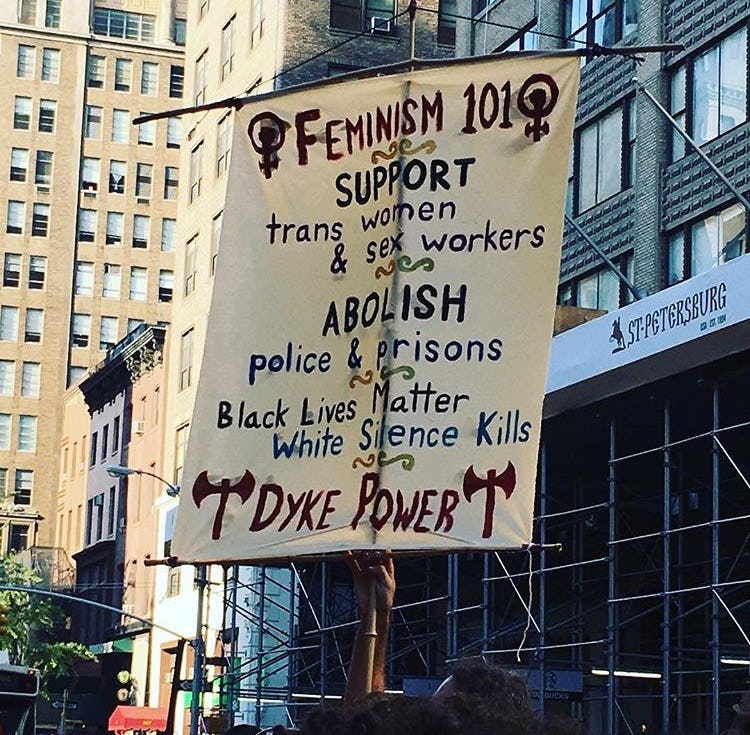 FEMINISM 101
SUPPORT
trans women
& sex workers
ABOLISH
police & prisons
Black Lives Matter
White Silence Kills
DYKE POWER
ST-PETERSBURG